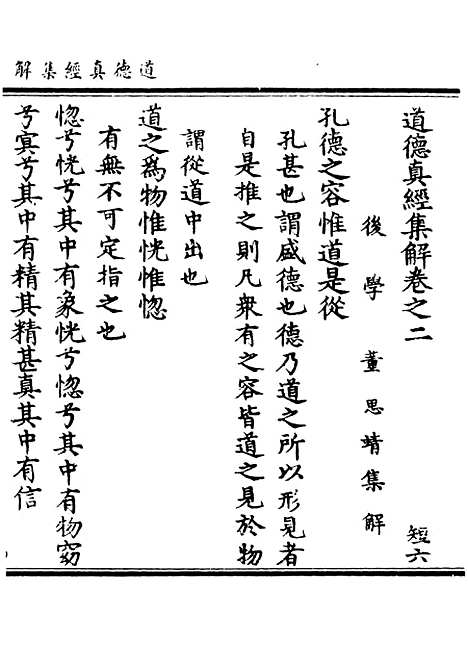 道德真經集解
道德真經集解卷之二　短六
後學　董思靖集解
孔德之容惟道是從
孔甚也謂盛德也德乃道之所以形見者
自是推之則凡衆有之容皆道之見於物
謂從道中出也
道之爲物惟恍惟惚
有無不可定指之也
惚兮恍兮其中有象恍兮惚兮其中有物窈
兮冥兮其中有精其精甚真其中有信